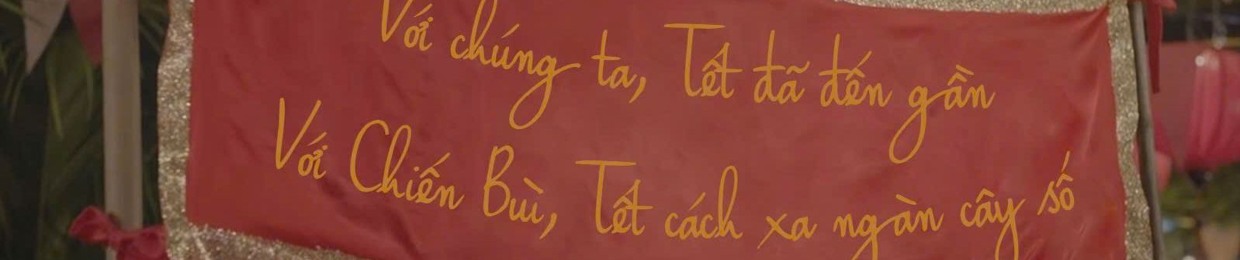 Với chúng ta, Tết đã đến gần
Với Chiến Bùi, Tết cách xa ngàn cây số